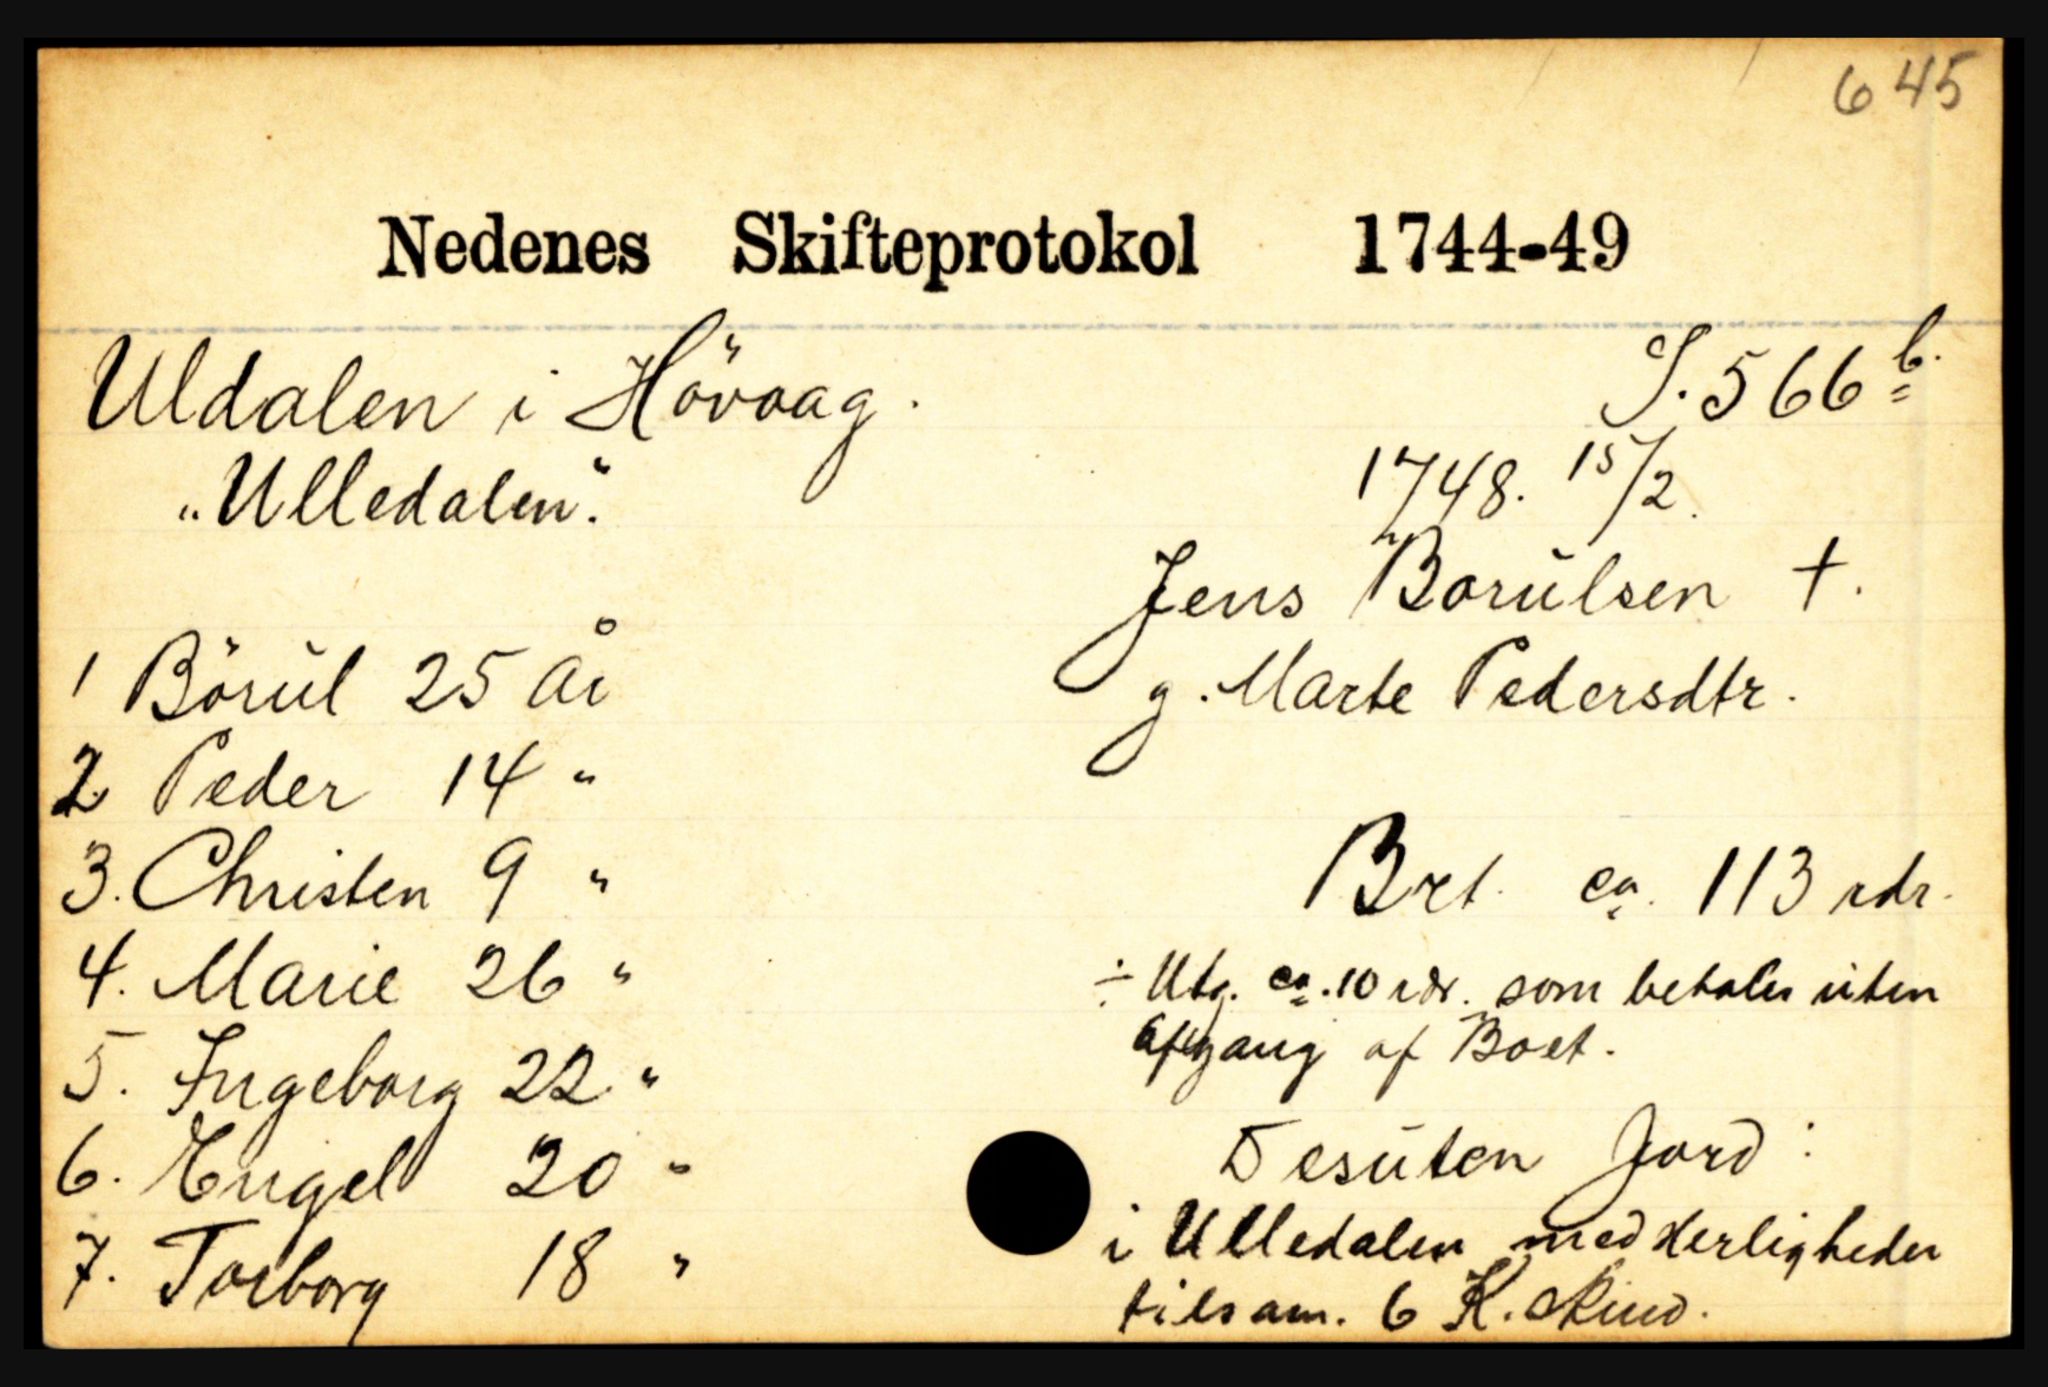 645
Nedenes Skifteprotokol 1744-49
Uldalen i Hövaag.
S. 566 b.
"Ulledalen".
1748. 15/2.
Jens Börulsen †.
g. Marte Pedersdtr.
1 Börul 25 år
2 Peder 14 "
3. Christen 9 "
4. Marie 26 "
5. Ingeborg 22 "
6. Engel 20 "
7. Torborg 18 "
Brt. ca. 113 rdr.
÷ Utg. ca. 10 rdr. som betales uten
afgang af Boet.
Desuten Jord:
i Ulledalen med herligheder
tilsam. 6 K. skind.